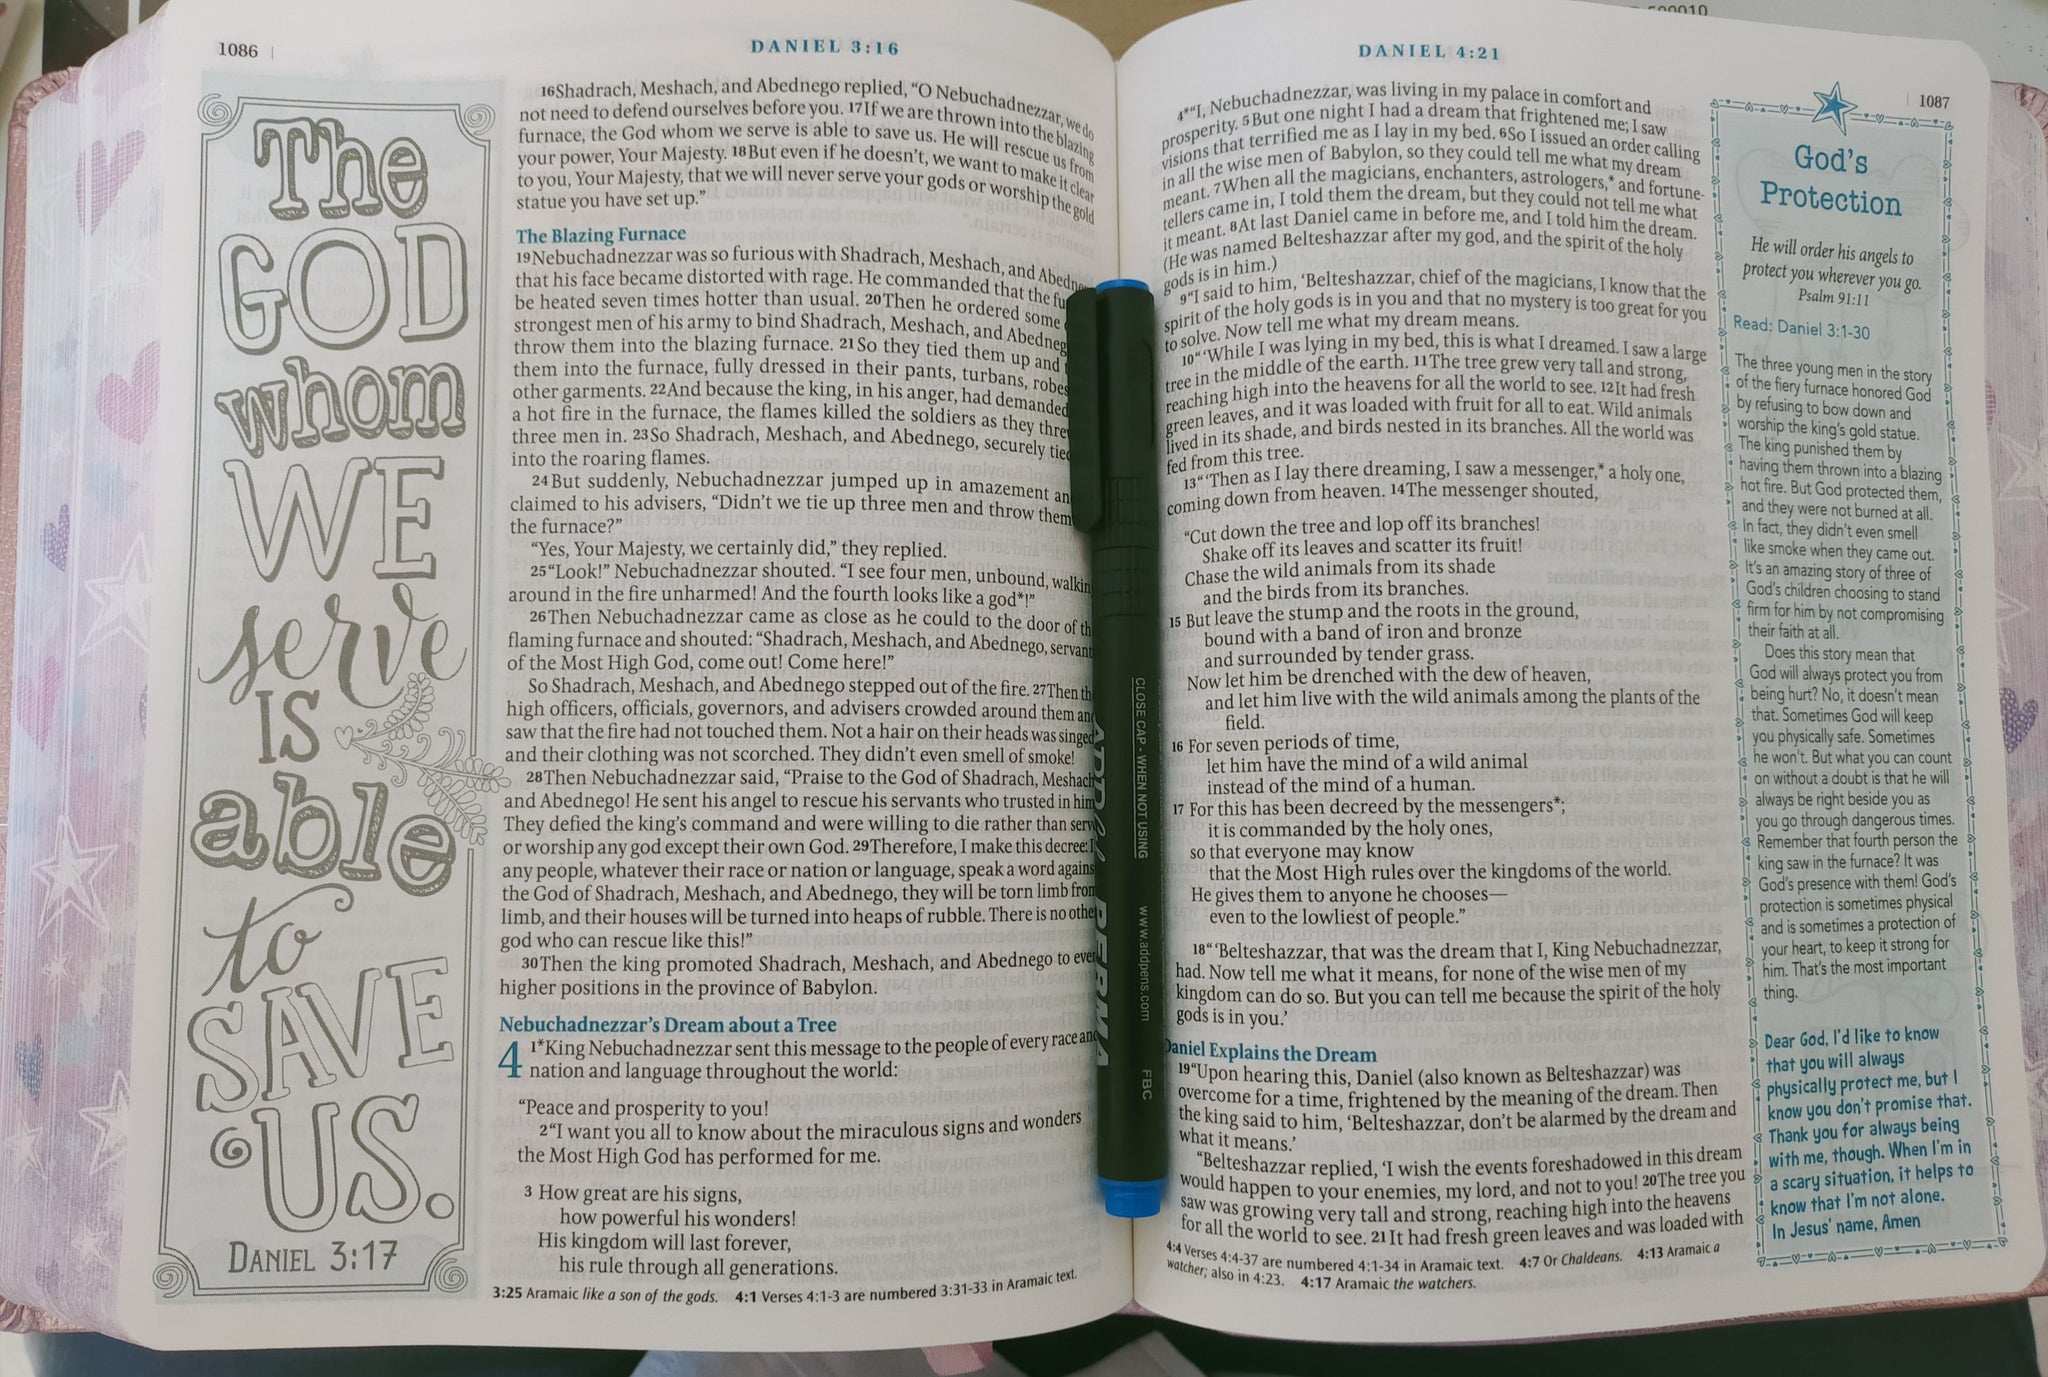 1086
DANIEL 3:16
The
GOD
whom
WE
serve
IS
able
to
SAVE
US.
DANIEL 3:17
16Shadrach, Meshach, and Abednego replied, “O Nebuchadnezzar, we do
not need to defend ourselves before you. 17If we are thrown into the blazing
furnace, the God whom we serve is able to save us. He will rescue us from
your power, Your Majesty. 18But even if he doesn’t, we want to make it clear
to you, Your Majesty, that we will never serve your gods or worship the gold
statue you have set up.”
The Blazing Furnace
19Nebuchadnezzar was so furious with Shadrach, Meshach, and Abedne
that his face became distorted with rage. He commanded that the fu
be heated seven times hotter than usual. 20Then he ordered some
strongest men of his army to bind Shadrach, Meshach, and Abedneg
throw them into the blazing furnace. 21So they tied them up and
them into the furnace, fully dressed in their pants, turbans, robes
other garments. 22And because the king, in his anger, had demanded
a hot fire in the furnace, the flames killed the soldiers as they thre
three men in. 23So Shadrach, Meshach, and Abednego, securely tied
into the roaring flames.
24But suddenly, Nebuchadnezzar jumped up in amazement an
claimed to his advisers, “Didn’t we tie up three men and throw them
the furnace?”
“Yes, Your Majesty, we certainly did,” they replied.
25“Look!” Nebuchadnezzar shouted. “I see four men, unbound, walkin
around in the fire unharmed! And the fourth looks like a god*!”
26Then Nebuchadnezzar came as close as he could to the door of th
flaming furnace and shouted: “Shadrach, Meshach, and Abednego, servant
of the Most High God, come out! Come here!”
So Shadrach, Meshach, and Abednego stepped out of the fire. 27Then th
high officers, officials, governors, and advisers crowded around them and
saw that the fire had not touched them. Not a hair on their heads was singed
and their clothing was not scorched. They didn’t even smell of smoke!
28Then Nebuchadnezzar said, “Praise to the God of Shadrach, Meshach
and Abednego! He sent his angel to rescue his servants who trusted in him
They defied the king’s command and were willing to die rather than serv
or worship any god except their own God. 29Therefore, I make this decree: I
any people, whatever their race or nation or language, speak a word agains
the God of Shadrach, Meshach, and Abednego, they will be torn limb from
limb, and their houses will be turned into heaps of rubble. There is no othe
god who can rescue like this!”
30Then the king promoted Shadrach, Meshach, and Abednego to eve
higher positions in the province of Babylon.
Nebuchadnezzar’s Dream about a Tree
4 1*King Nebuchadnezzar sent this message to the people of every race and
nation and language throughout the world:
“Peace and prosperity to you!
2“I want you all to know about the miraculous signs and wonders
the Most High God has performed for me.
3 How great are his signs,
how powerful his wonders!
His kingdom will last forever,
his rule through all generations.
3:25 Aramaic like a son of the gods. 4:1 Verses 4:1-3 are numbered 3:31-33 in Aramaic text.
ADD PERMA
CLOSE CAP - WHEN NOT USING
www.addpens.com
FBC
DANIEL 4:21
1087
4*“I, Nebuchadnezzar, was living in my palace in comfort and
prosperity. 5But one night I had a dream that frightened me; I saw
visions that terrified me as I lay in my bed. 6So I issued an order calling
in all the wise men of Babylon, so they could tell me what my dream
meant. 7When all the magicians, enchanters, astrologers,* and fortune-
tellers came in, I told them the dream, but they could not tell me what
it meant. 8At last Daniel came in before me, and I told him the dream.
(He was named Belteshazzar after my god, and the spirit of the holy
gods is in him.)
9“I said to him, ‘Belteshazzar, chief of the magicians, I know that the
spirit of the holy gods is in you and that no mystery is too great for you
to solve. Now tell me what my dream means.
10“‘While I was lying in my bed, this is what I dreamed. I saw a large
tree in the middle of the earth. 11The tree grew very tall and strong,
reaching high into the heavens for all the world to see. 12It had fresh
green leaves, and it was loaded with fruit for all to eat. Wild animals
lived in its shade, and birds nested in its branches. All the world was
fed from this tree.
13“‘Then as I lay there dreaming, I saw a messenger,* a holy one,
coming down from heaven. 14The messenger shouted,
“Cut down the tree and lop off its branches!
Shake off its leaves and scatter its fruit!
Chase the wild animals from its shade
and the birds from its branches.
15 But leave the stump and the roots in the ground,
bound with a band of iron and bronze
and surrounded by tender grass.
Now let him be drenched with the dew of heaven,
and let him live with the wild animals among the plants of the
field.
16 For seven periods of time,
let him have the mind of a wild animal
instead of the mind of a human.
17 For this has been decreed by the messengers*;
it is commanded by the holy ones,
so that everyone may know
that the Most High rules over the kingdoms of the world.
He gives them to anyone he chooses—
even to the lowliest of people.”
18“‘Belteshazzar, that was the dream that I, King Nebuchadnezzar,
had. Now tell me what it means, for none of the wise men of my
kingdom can do so. But you can tell me because the spirit of the holy
gods is in you.’
Daniel Explains the Dream
19“Upon hearing this, Daniel (also known as Belteshazzar) was
overcome for a time, frightened by the meaning of the dream. Then
the king said to him, ‘Belteshazzar, don’t be alarmed by the dream and
what it means.’
“Belteshazzar replied, ‘I wish the events foreshadowed in this dream
would happen to your enemies, my lord, and not to you! 20The tree you
saw was growing very tall and strong, reaching high into the heavens
for all the world to see. 21It had fresh green leaves and was loaded with
4:4 Verses 4:4-37 are numbered 4:1-34 in Aramaic text. 4:7 Or Chaldeans. 4:13 Aramaic a
watcher; also in 4:23. 4:17 Aramaic the watchers.
God’s
Protection
He will order his angels to
protect you wherever you go.
Psalm 91:11
Read: Daniel 3:1-30
The three young men in the story
of the fiery furnace honored God
by refusing to bow down and
worship the king’s gold statue.
The king punished them by
having them thrown into a blazing
hot fire. But God protected them,
and they were not burned at all.
In fact, they didn’t even smell
like smoke when they came out.
It’s an amazing story of three of
God’s children choosing to stand
firm for him by not compromising
their faith at all.
Does this story mean that
God will always protect you from
being hurt? No, it doesn’t mean
that. Sometimes God will keep
you physically safe. Sometimes
he won’t. But what you can count
on without a doubt is that he will
always be right beside you as
you go through dangerous times.
Remember that fourth person the
king saw in the furnace? It was
God’s presence with them! God’s
protection is sometimes physical
and is sometimes a protection of
your heart, to keep it strong for
him. That’s the most important
thing.
Dear God, I’d like to know
that you will always
physically protect me, but I
know you don’t promise that.
Thank you for always being
with me, though. When I’m in
a scary situation, it helps to
know that I’m not alone.
In Jesus’ name, Amen